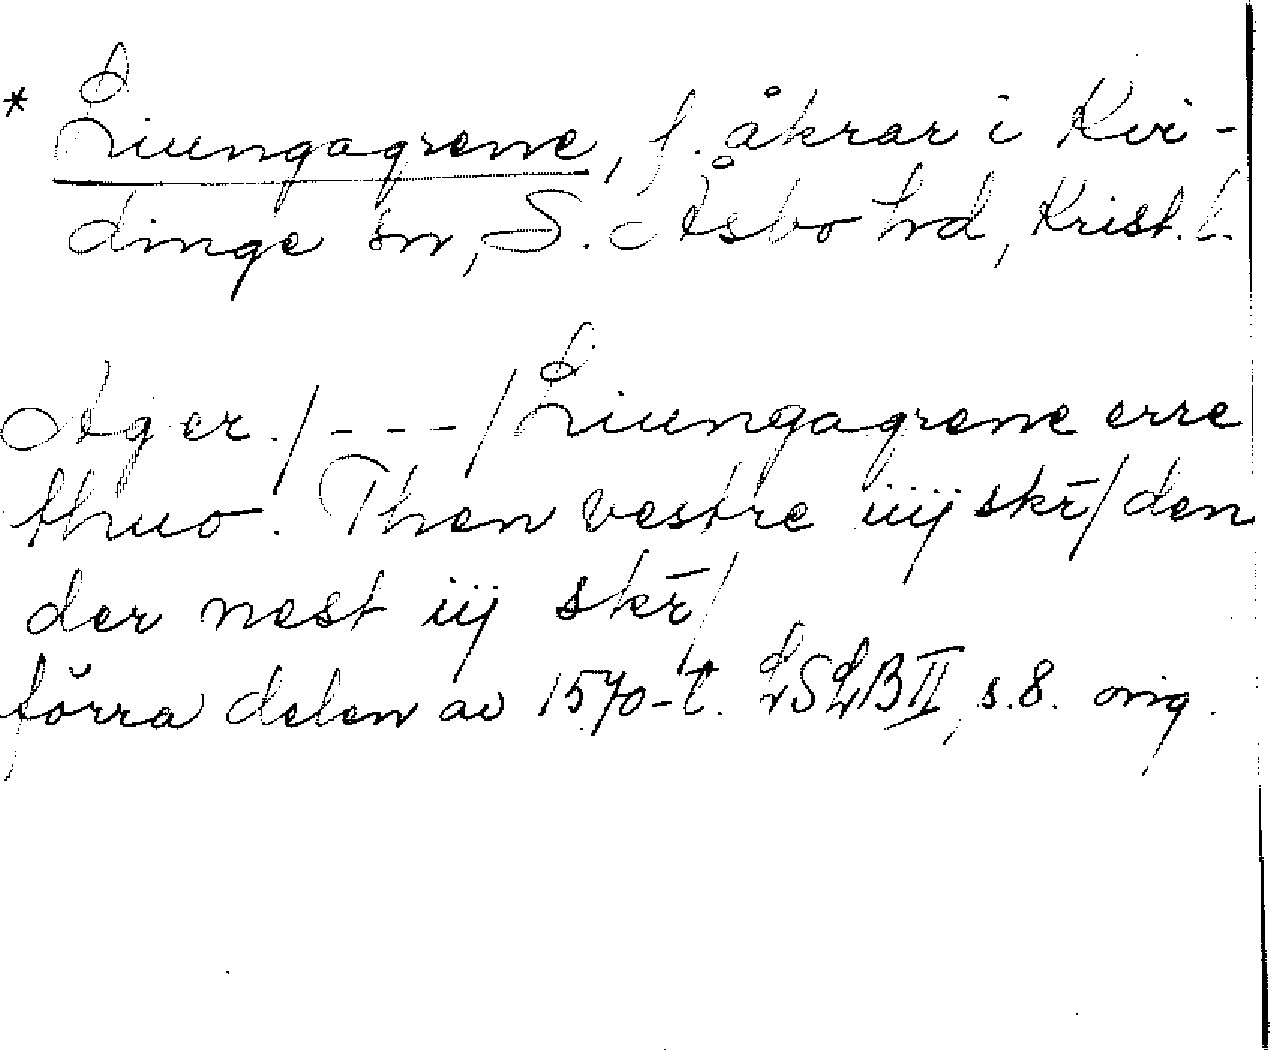 * Liungagrene, f. åkrar i Kvi-
dinge sn, S. Åsbo hd, Krist. l.
Ager /---/ Liungagrene erre
thuo. Then vestre iiij skr̄/ den
der nest iij skr̄/
förra delen av 1570-t. LSLB II, s. 8. orig.